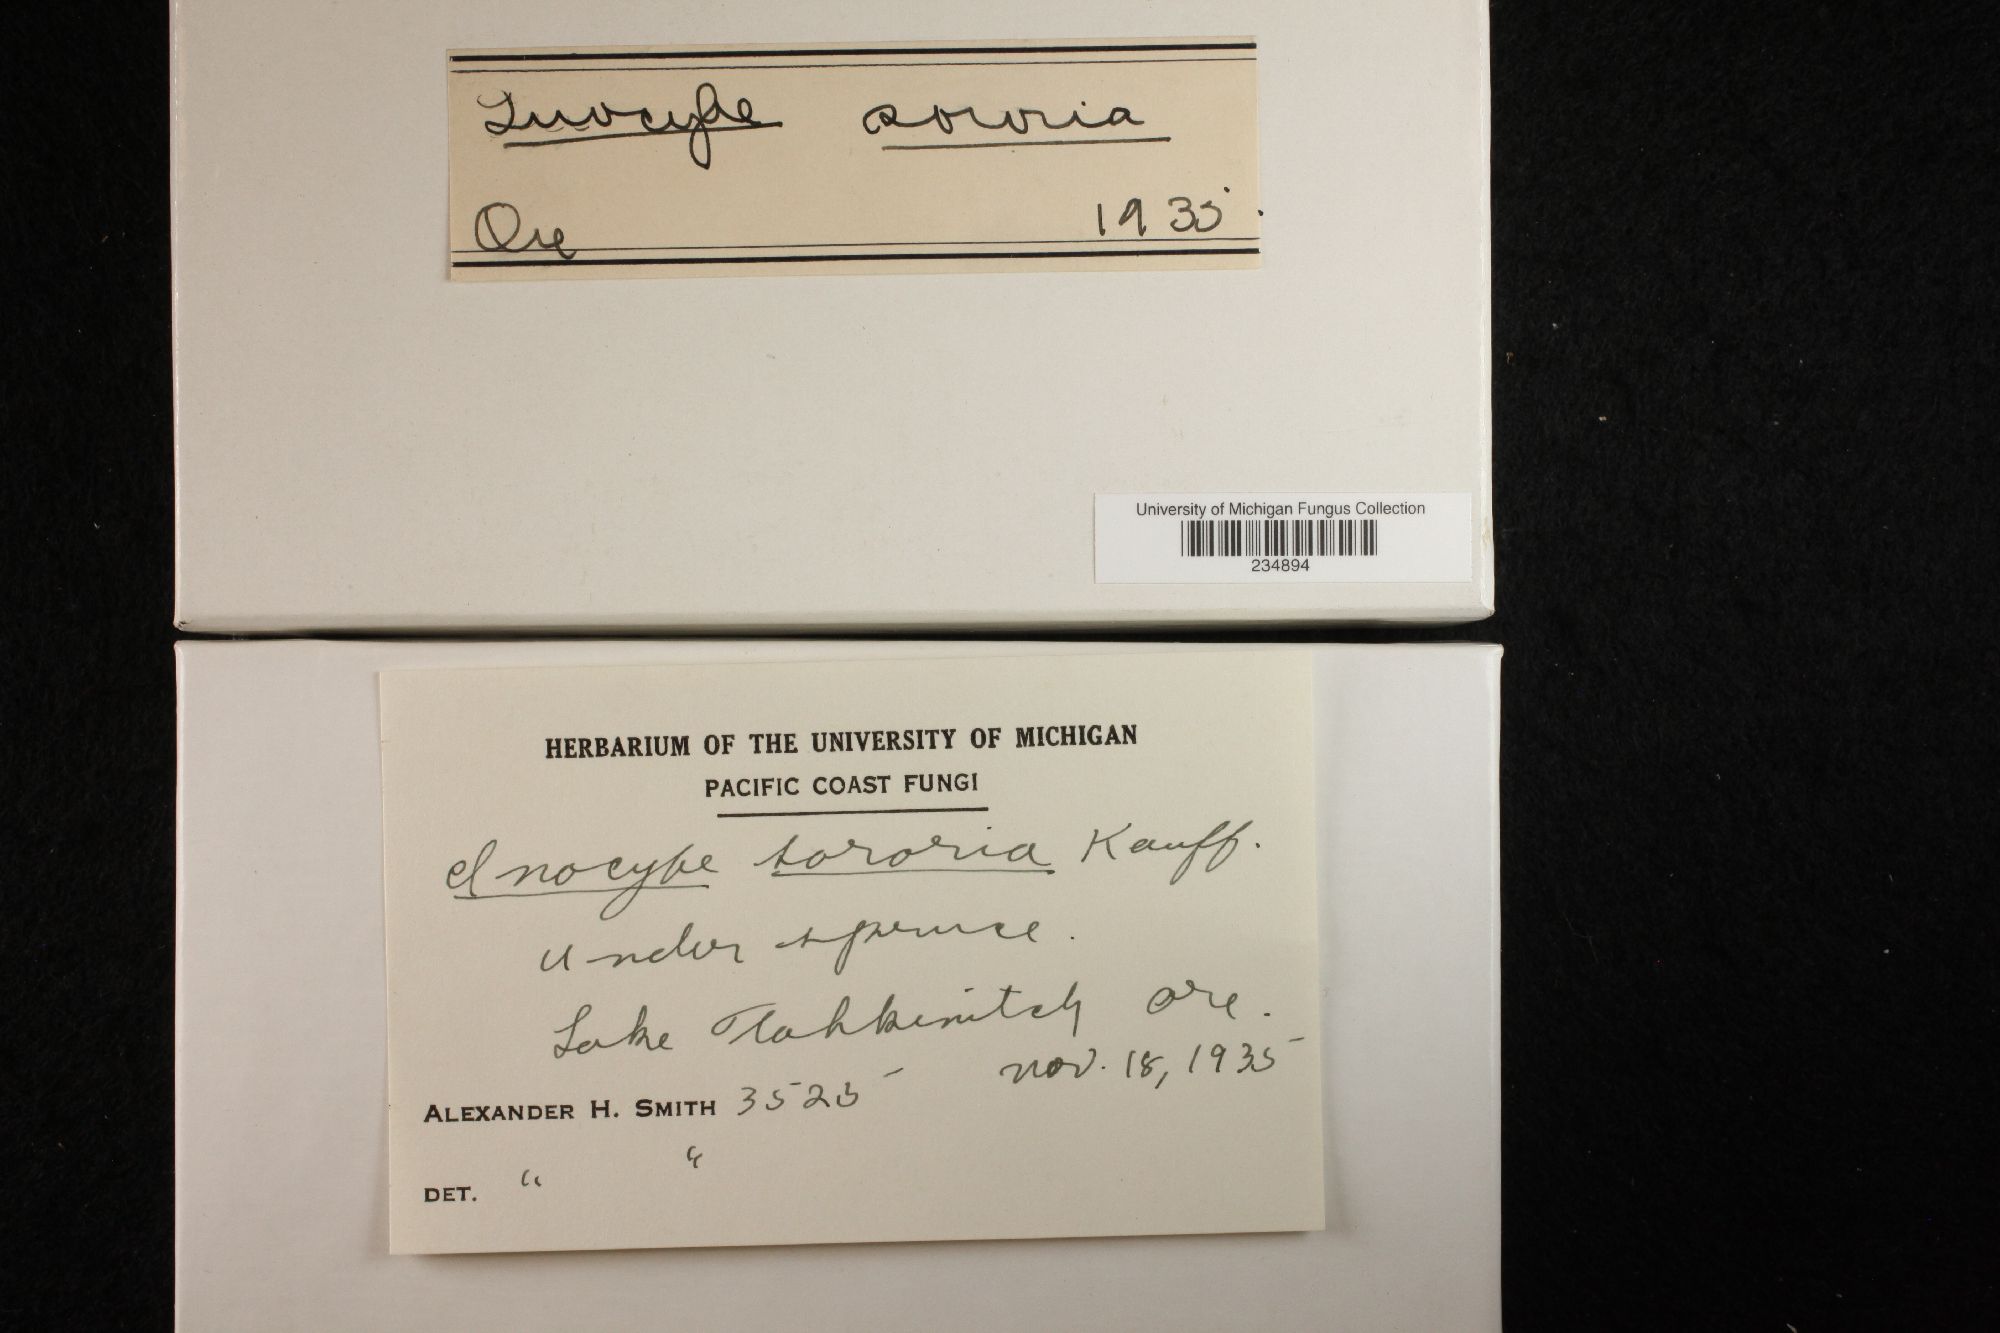 Inocybe sororia
Ore 1935.
University of Michigan Fungus Collection
234894
HERBARIUM OF THE UNIVERSITY OF MICHIGAN
PACIFIC COAST FUNGI
Inocybe sororia Kauff.
under spruce.
Lake Tahkenitch Ore.
Nov. 18, 1935
ALEXANDER H. SMITH 3525
DET. " "